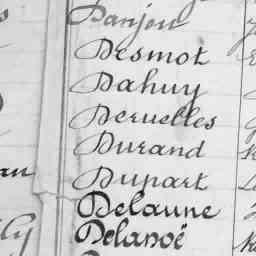 Danjou
Desmot
Dahuy
Deruelles
Durand
Dupart
Delaune
Delanoë